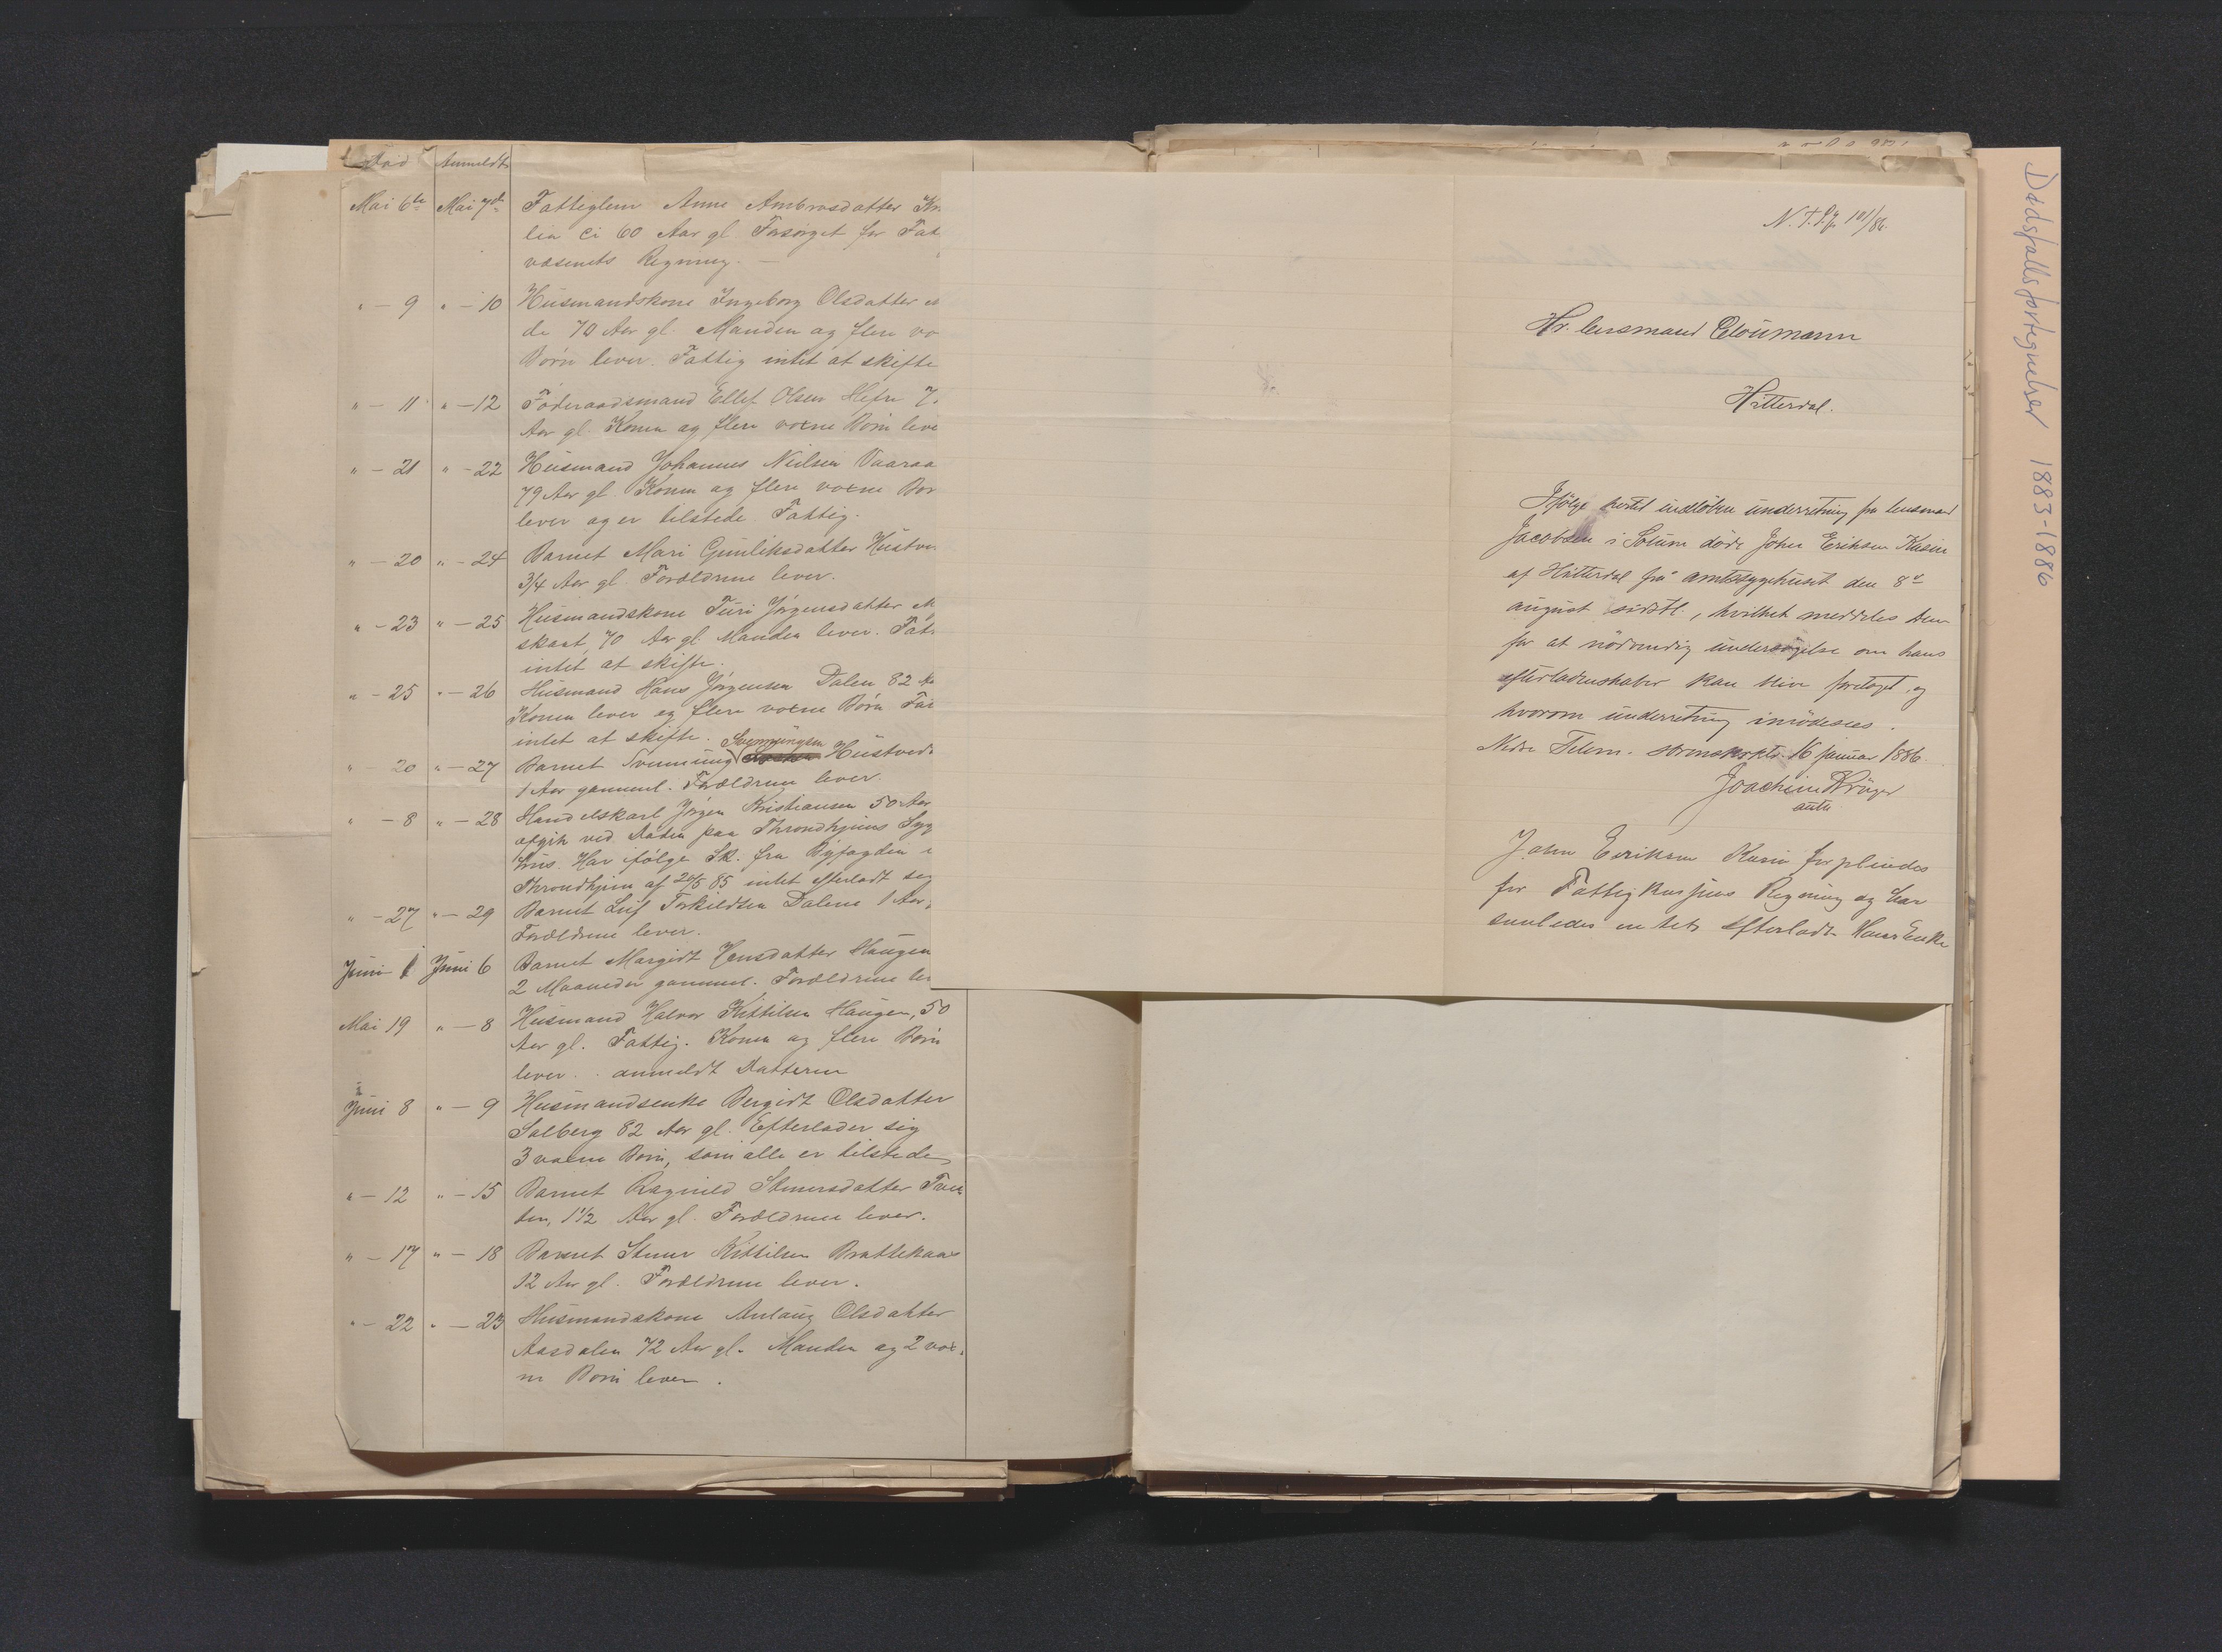 Død Anmeldt
Mai 6te Mai 7de Fattiglem Anne Ambrosdatter
lia ci 60 Aar gl Forsørget for Fat
væsenets Regning. —
" — 9 " — 10 Husmandskone Ingeborg Olsdatter
de 70 Aar gl. Manden og flere vo
Børn lever. Fattig intet at skifte
" — 11 " — 12 Føderaadsmand Ellef Olsen Hefre 7
Aar gl. Konen og flere voxne Børn leve
" — 21 " — 22 Husmand Johannes Nielsen Vaaraa
79 Aar gl. Konen og flere voxne Bør
lever og er tilstede. Fattig.
" — 20 " — 24 Barnet Mari Gunliksdatter Hustve
3/4 Aar gl. Forældrene lever.
" — 23 " — 25 Husmandskone Turi Jørgensdatter M
skaat, 70 Aar gl. Manden lever. Fat
intet at skifte.
" — 25 " — 26 Husmand Hans Jørgensen Dalen 82 Aa
Konen lever og flere voxne Børn Fat
intet at skifte.
Svennungsen
" — 20 " — 27 Barnet Svennung Hustved
1 Aar gammel. Forældrene lever.
" — 8 " — 28 Handelskarl Jørgen Kristiansen 50 Aar
afgik ved Døden paa Throndhjems Syg
hus. Har ifølge Sk. fra Byfogden i
Throndhjem af 26/5 85 intet efterladt sig
" — 27 " — 29 Barnet Leif Torkildsen Dalene 1 Aar
Forældrene lever.
Juni 1 Juni 6 Barnet Margit Hansdatter Haugen
2 Maaneder gammel. Forældrene lev
Mai 19 " — 8 Husmand Halvor Kittilsen Haugen, 50
Aar gl. Fattig. Konen og flere Børn
lever. . anmeldt Datteren
Juni 8 " — 9 Husmandsenke Bergit Olsdatter
Solberg 82 Aar gl. Efterlader sig
3 voxne Børn, som alle er tilstede
" — 12 " — 15 Barnet Ragnild Steinersdatter
ten, 1 1/2 Aar gl. Forældrene lever.
" — 17 " — 18 Barnet Kittilsen Brattekaas
12 Aar gl. Forældrene lever.
" — 22 " — 23 Husmandskone Anlaug Olsdatter
Aasdalen 72 Aar gl. Manden og 2 vox-
ne Børn lever.
N. T. 101/86.
Hr. lensmand Cloumann
Hitterdal.
Ifølge hertil indløben underretning fra lensmand
Jacobsen i Solum døde John Eriksen Kasin
af Hitterdal på amtssygehuset den 8de
august sidstl., hvilket meddeles Dem
for at nødvendig undersøgelse om hans
efterladenskaber kan blive foretaget, og
hvorom underretning imødesees.
Nedre Telem. sorenskrkt. 16 januar 1886.
Joachim Krüger
auth.
John Eriksen Kasin forpleiedes
for Fattigkassens Regning og har
saaledes intet efterladt. Hans Enke
Dødsfallsfortegnelser 1883-1886